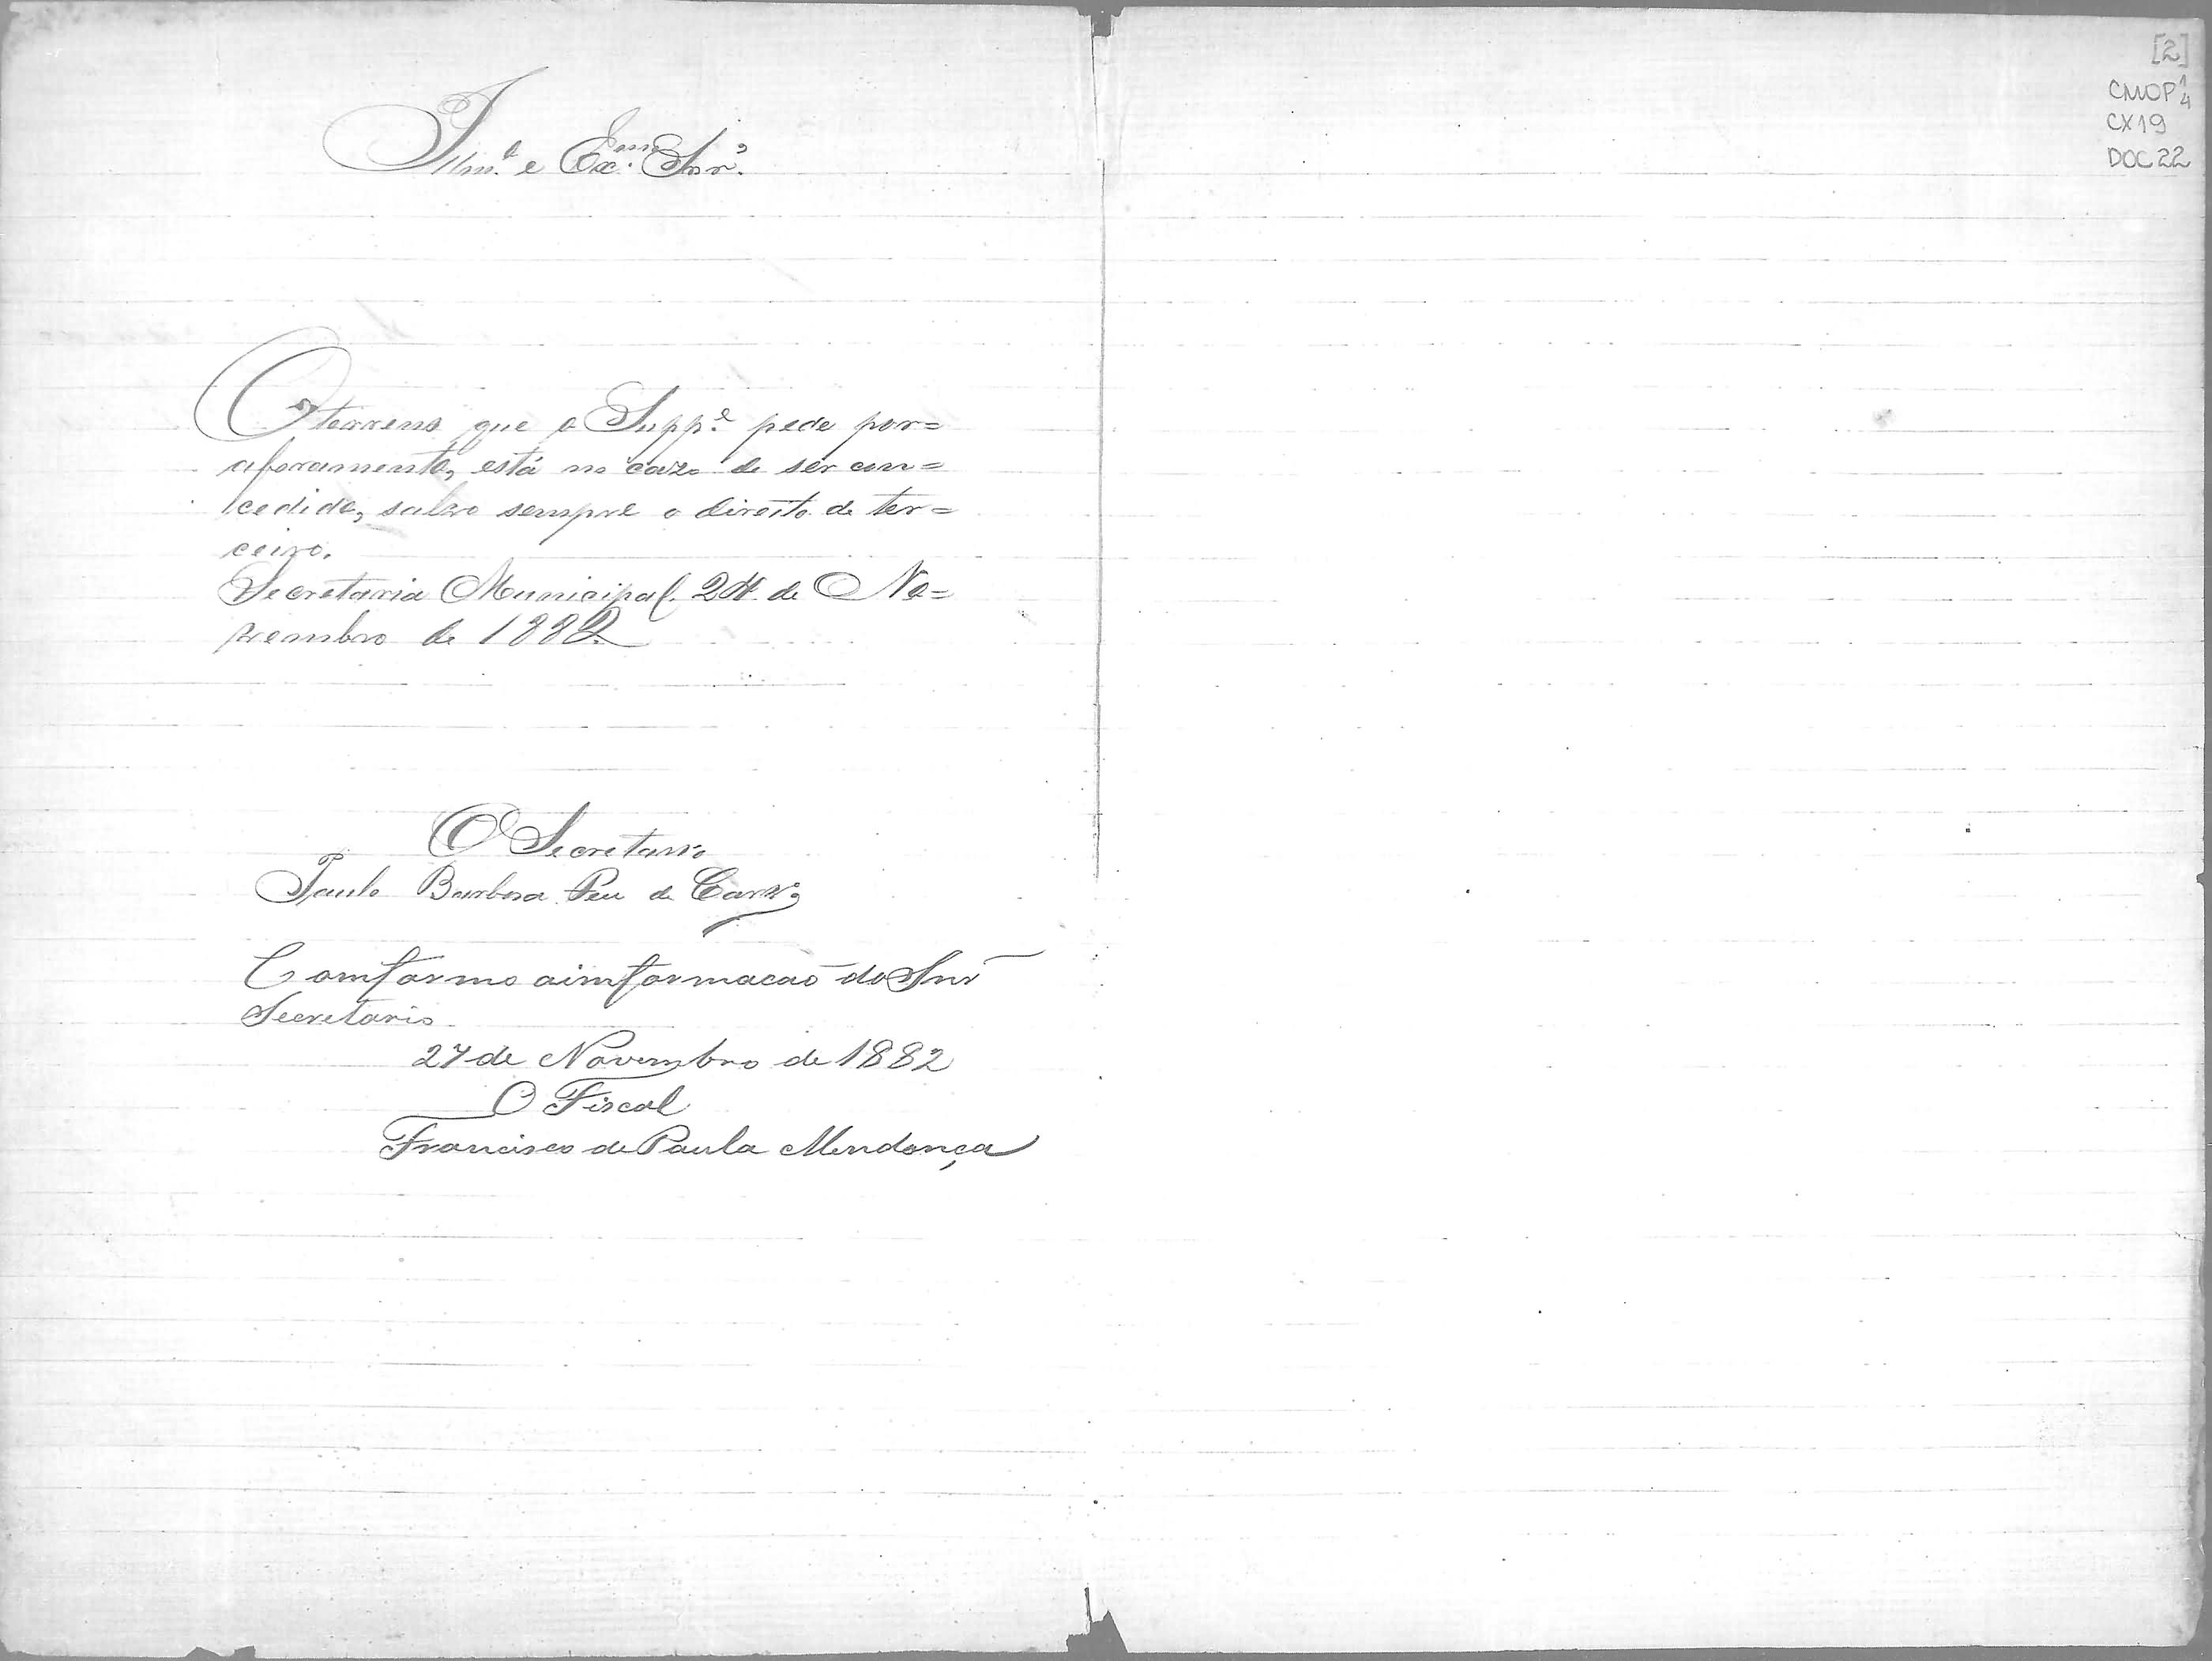 [2]
CMOP 1/4
CX19
DOC 22
Illm.º e Ex.mo Snr.º
O terreno que o Supp.e pede por=
aforamento, está no cazo de ser con=
cedido, salvo sempre o direito de ter=
ceiro.
Secretaria Municipal. 24 de No=
vembro de 1882
O Secretario
Paulo Barbosa de
Comformo aimformacaõ do Snr
Secretario
27 de Novembro de 1882
O Fiscal
Francisco de Paula Mendonça